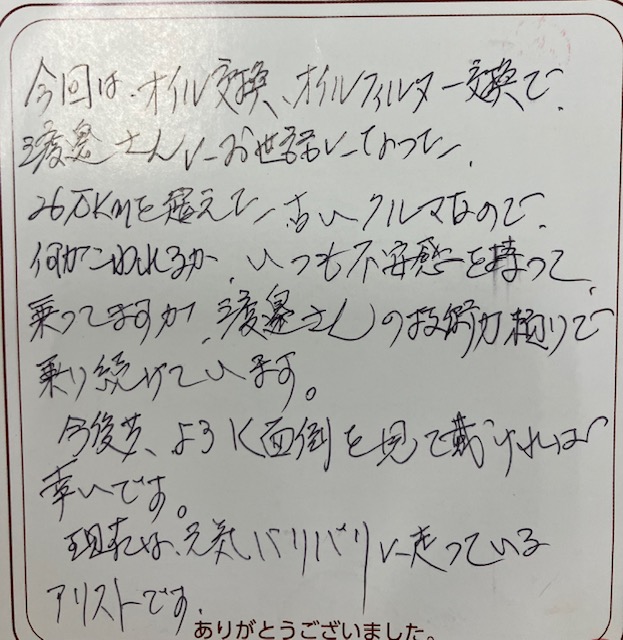 今回は、オイル交換、オイルフィルター交換で、
渡島さんにお世話になった。
26万KMを超えて、古いクルマなので、
何がこわれるか、いつも不安感を持って、
乗ってますが、渡島さんの技術力頼りで
乗り続けています。
今後共、よろしく面倒を見て戴ければ
幸いです。
現在は、元気バリバリに走っている
アリストです.
ありがとうございました。